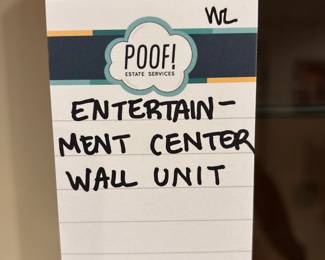 WL
POOF!
ESTATE SERVICES
ENTERTAIN-
MENT CENTER
WALL UNIT